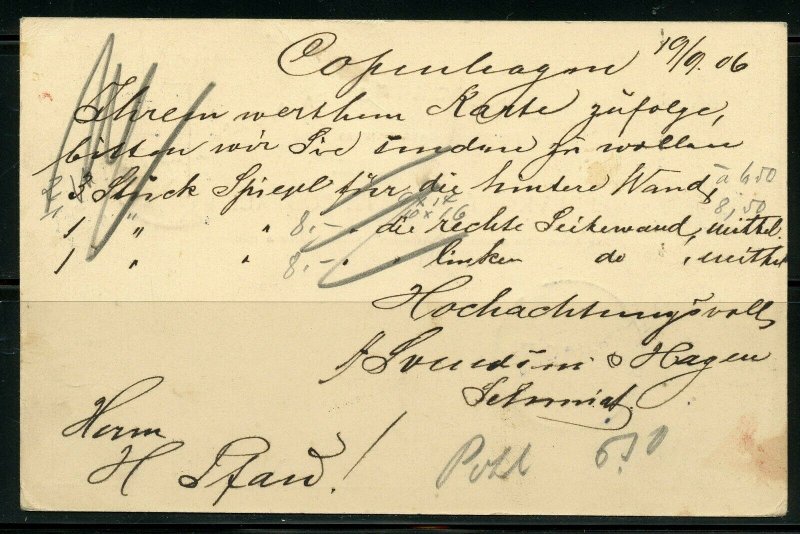 Copenhagen 19/9. 06
Ihrem werthem Karte zufolge,
bitten wir Sie senden zu wollen
2 Stück Spiegel für die hintere Wand, à 6.50
9 x 14 8,50
1 " " 8,- " die rechte Seitenwand, mittel.
10 x 16
1 " " 8,- " " linken do , mittel
Hochachtungsvoll
Svendsen & Hagen
Schmidt
Herrn
H Pfau!
Pohl 650